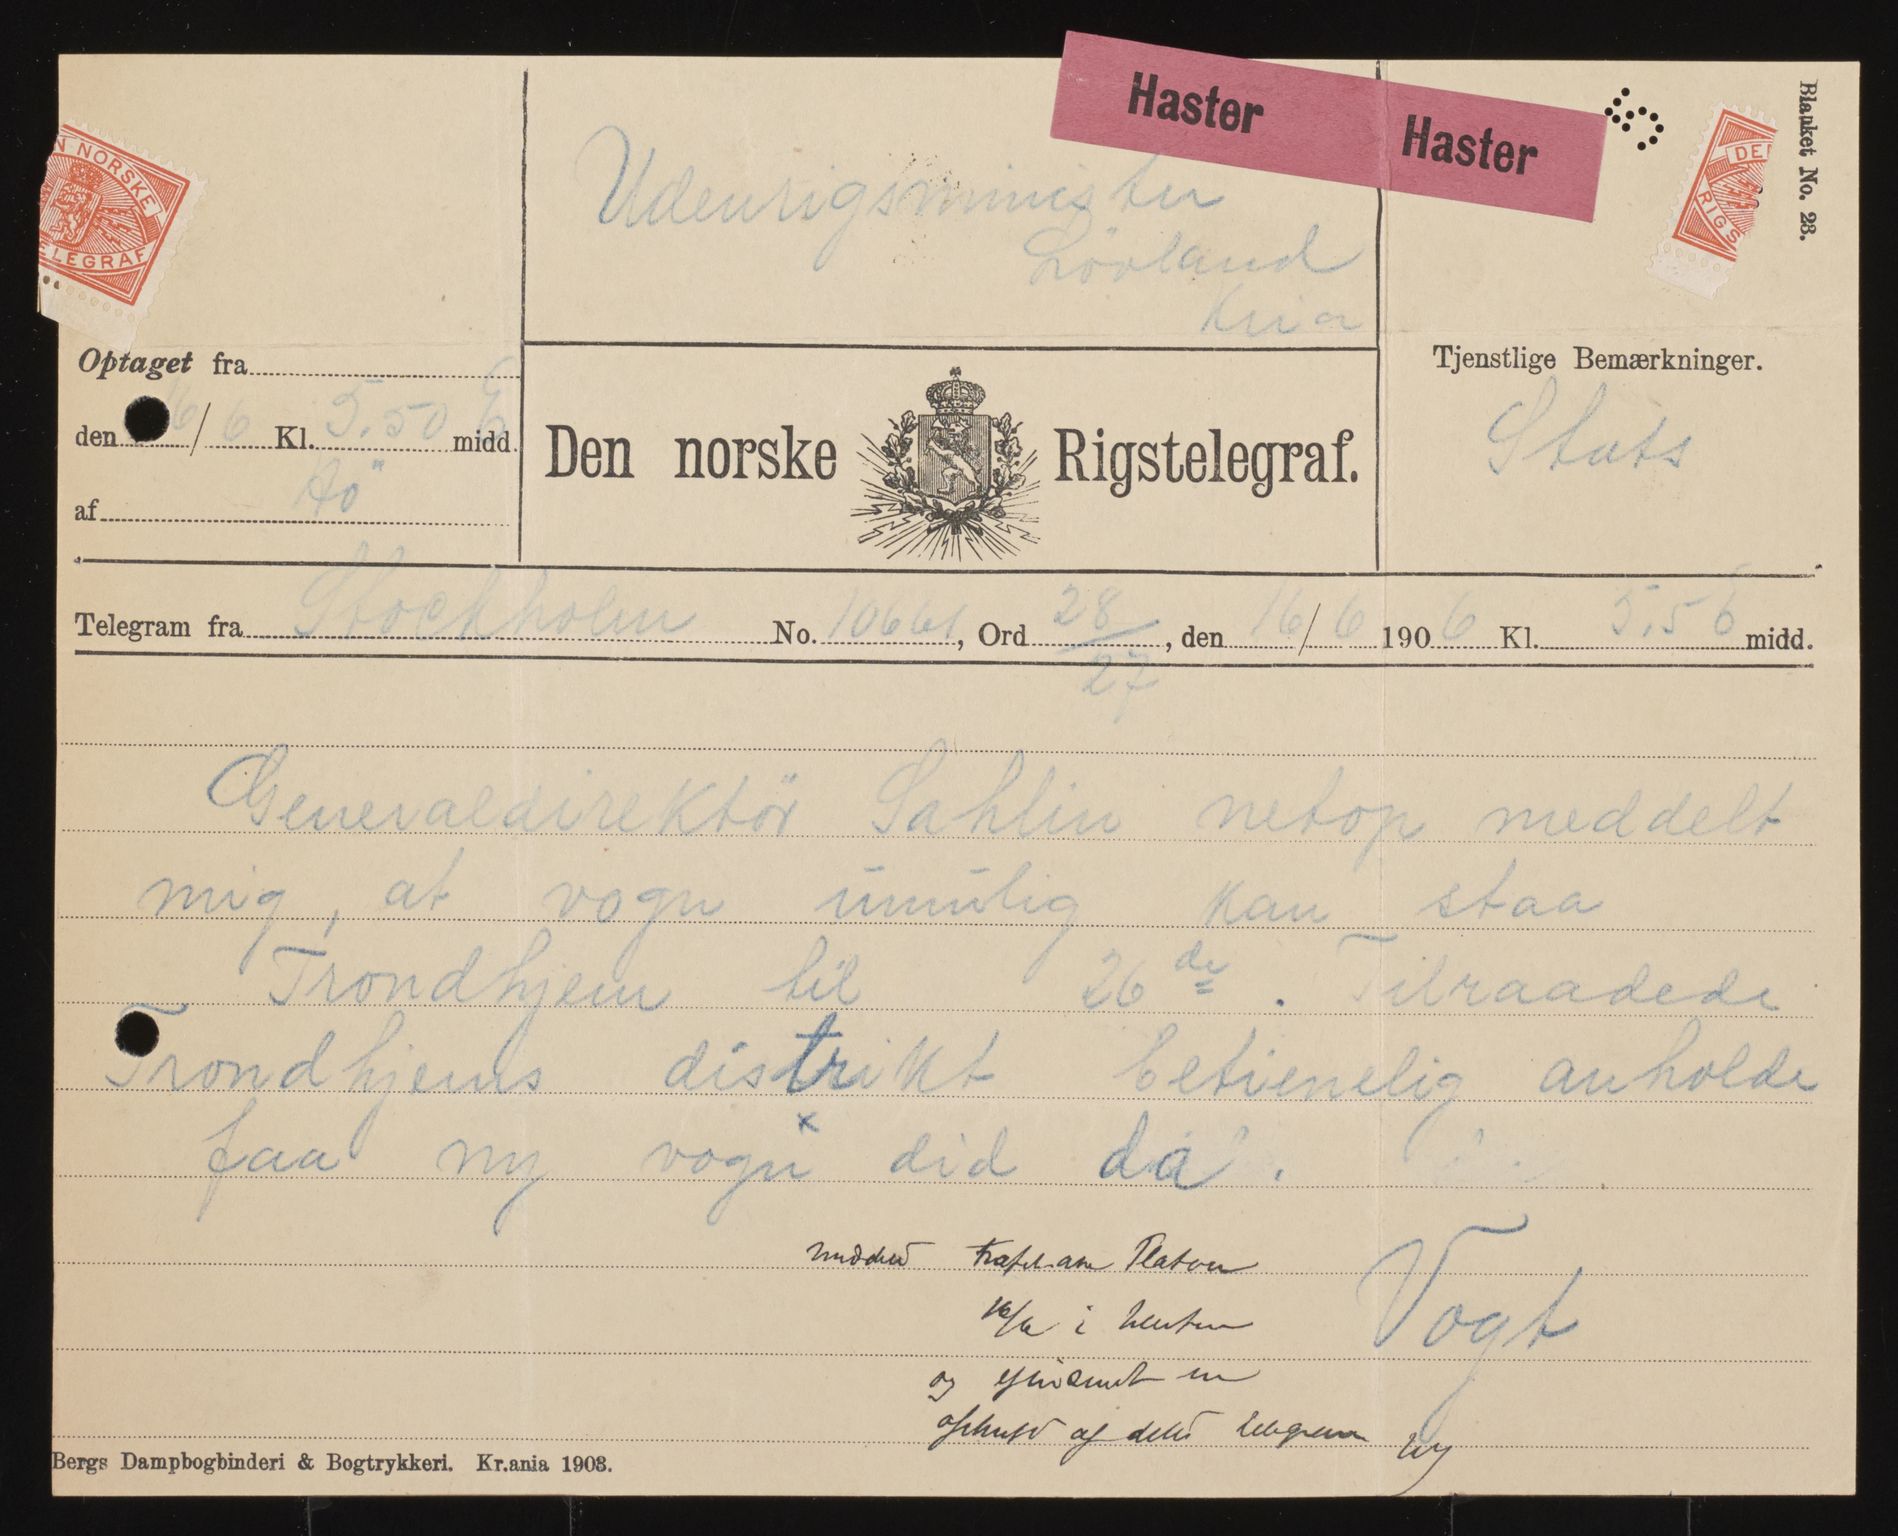 Haster Haster
Blanket No. 23.
N NORSKE
ELEGRAF
DEN
RIGS
Udenrigsminister
Lövland
Kria
Optaget fra
den 16/6 Kl. 5.50 E midd.
af Aö
Den norske Rigstelegraf.
Tjenstlige Bemærkninger.
Stats
Telegram fra Stockholm No. 10661, Ord 28/27, den 16/6 1906 Kl. 5.56 midd.
Generaldirektör Sahlin netop meddelt
mig, at vogn umulig kan staa
Trondhjem til 26de. Tilraadede
Trondhjems distrikt betienelig anholde
faa ny vogn did da.
Vogt
16/6 i
og en
afskrift af dette telegram
Bergs Dampbogbinderi & Bogtrykkeri. Kr.ania 1903.